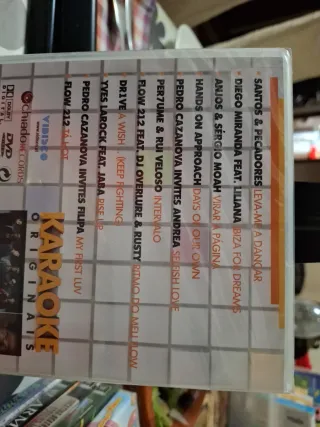 SANTOS & PECADORES LEVA-ME A DANÇAR
DIEGO MIRANDA FEAT. LILIANA IBIZA FOR DREAMS
ANJOS & SÉRGIO MOAH VIRAR A PÁGINA
HANDS ON APPROACH DAYS OF OUR OWN
PEDRO CAZANOVA INVITES ANDREA SELFISH LOVE
PER7UME & RUI VELOSO INTERVALO
FLOW 212 FEAT. DJ OVERLURE & RUSTY RITMO DO MEU FLOW
DR1VE A WISH (KEEP FIGHTING
YVES LAROCK FEAT. JABA RISE UP
PEDRO CAZANOVA INVITES FILIPA MY FIRST LUV
FLOW 212 TÁ HOT
KARAOKE
ORIGINAIS
VIDISCO
DVD
DOLBY
DIGITAL